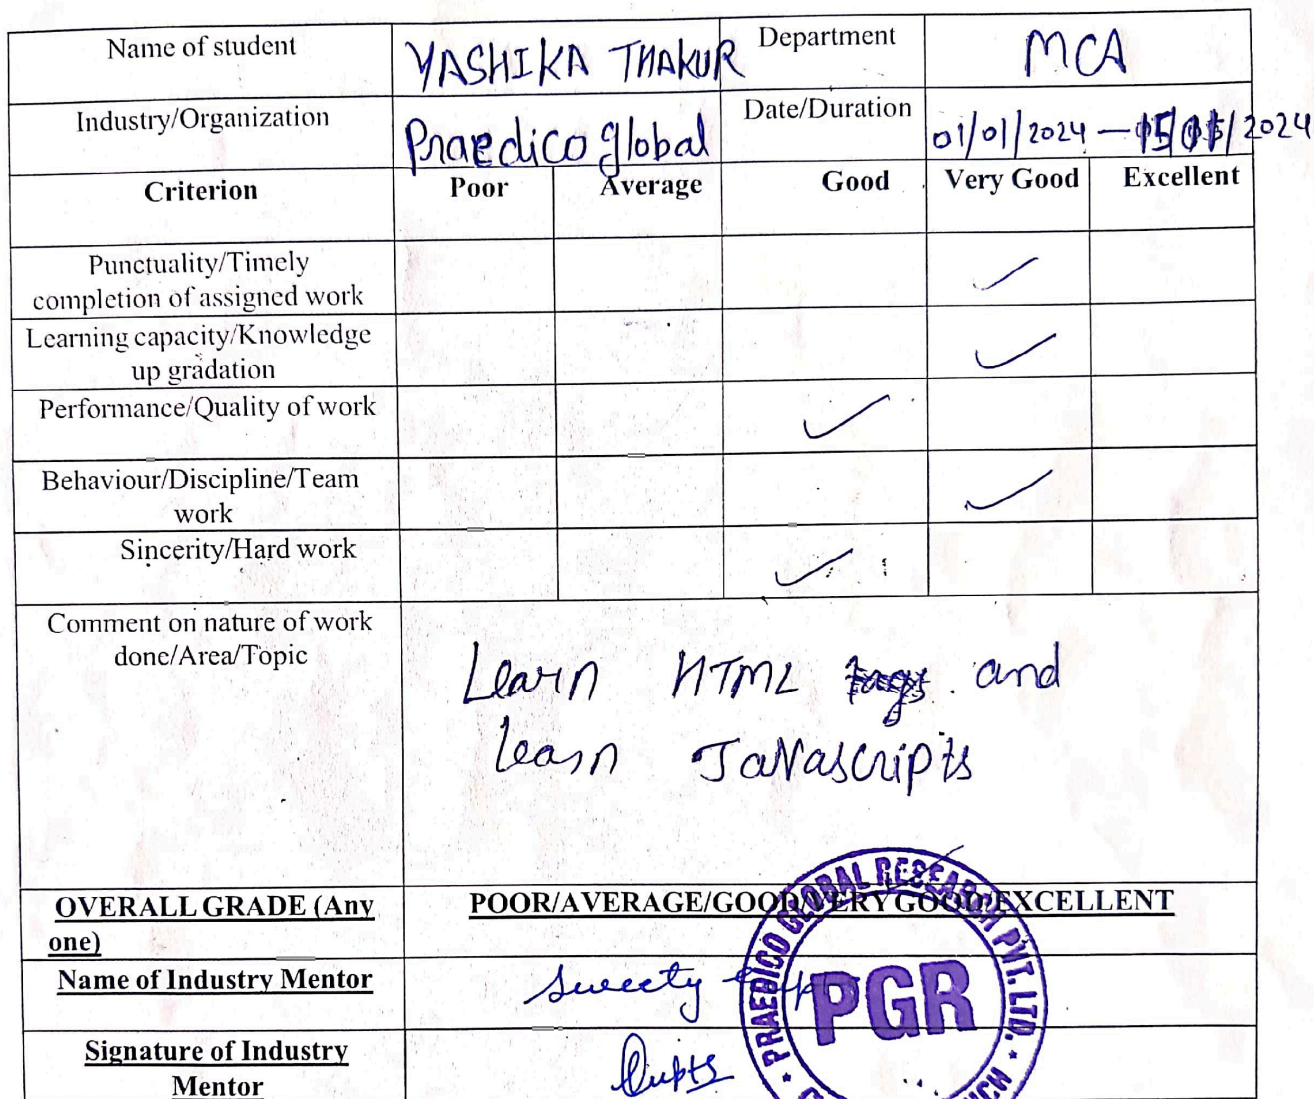 Name of student YASHIKA THAKUR Department MCA
Industry/Organization Praedico global Date/Duration 01/01/2024 — /2024
Criterion Poor Average Good Very Good Excellent
Punctuality/Timely
completion of assigned work
Learning capacity/Knowledge
up gradation
Performance/Quality of work
Behaviour/Discipline/Team
work
Sincerity/Hard work
Comment on nature of work
done/Area/Topic
Learn HTML and
learn JaVascripts
OVERALL GRADE (Any
one)
POOR/AVERAGE/GOOD/VERY GOOD/EXCELLENT
Name of Industry Mentor Sweety
Signature of Industry
Mentor
PRAEDICO GLOBAL RESEARCH PVT. LTD.
PGR